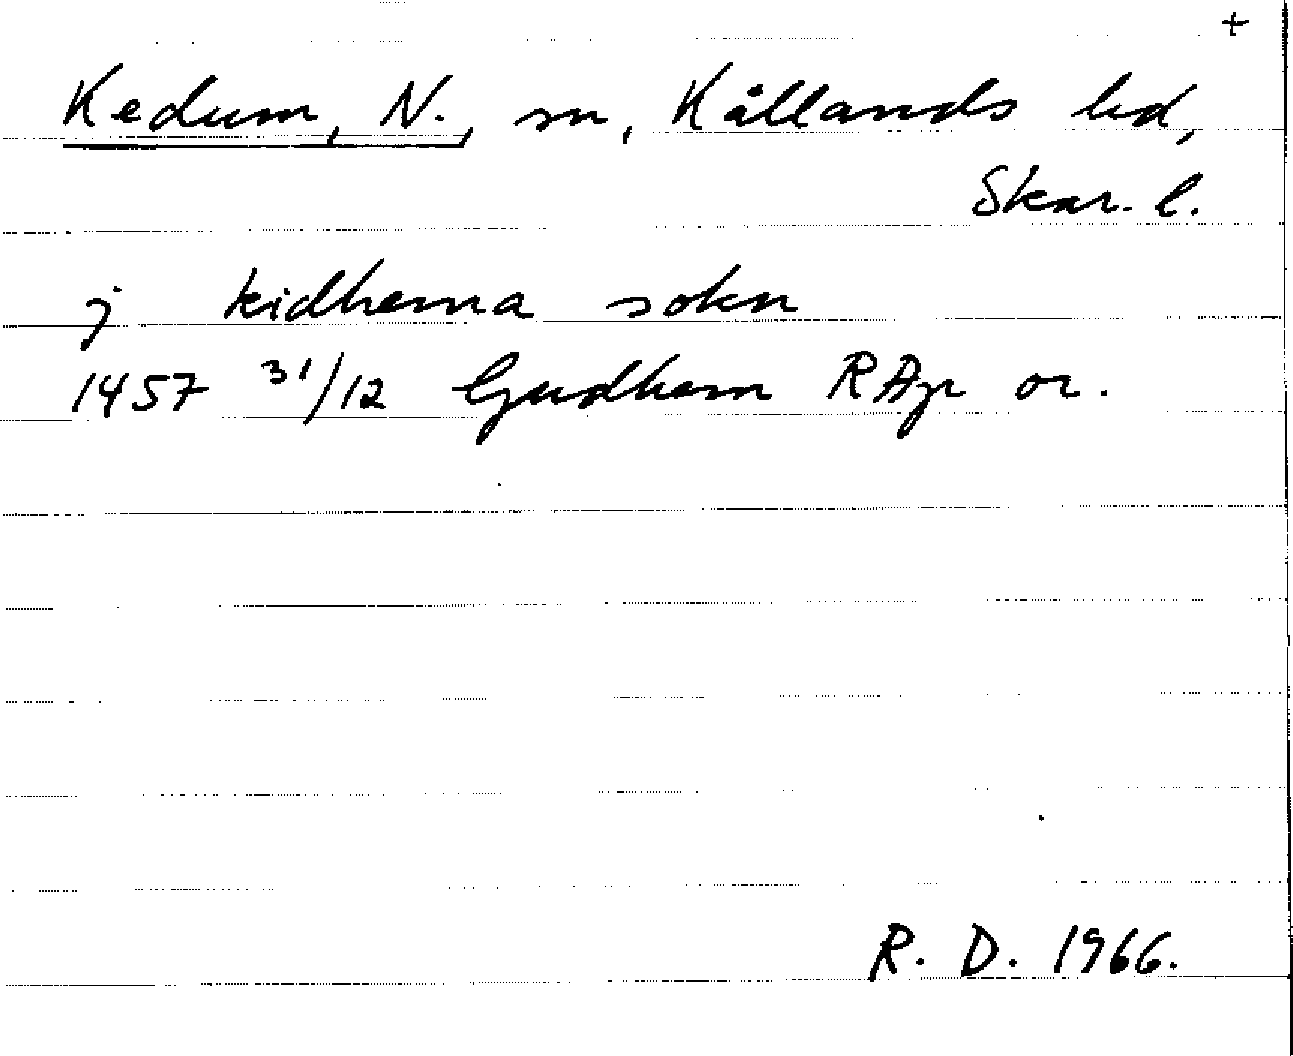 +
Kedum, N., sn, Kållands hd,
Skar. l.
j kidhema sokn
1457 31/12 Gudhem RAp or.
R. D. 1966.